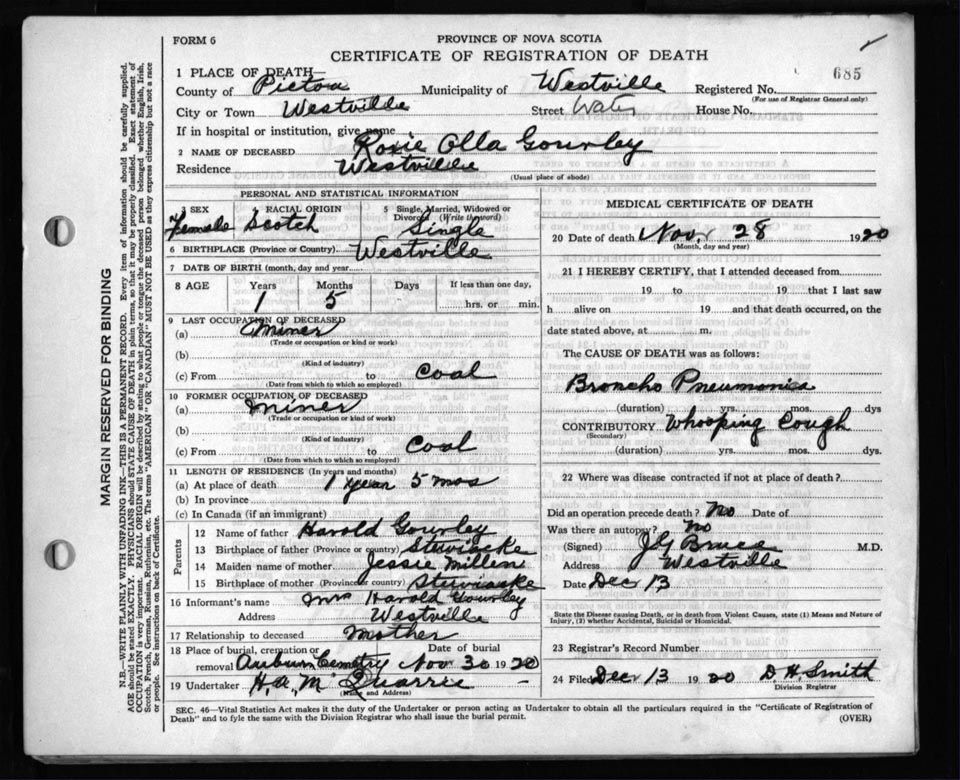 FORM 6
PROVINCE OF NOVA SCOTIA
CERTIFICATE OF REGISTRATION OF DEATH
685
1 PLACE OF DEATH
County of Pictou Municipality of Westville Registered No.
(For use of Registrar General only)
City or Town Westville Street Water House No.
If in hospital or institution, give name
2 NAME OF DECEASED Rosie Olla Gourley
Residence Westville
(Usual place of abode)
PERSONAL AND STATISTICAL INFORMATION
3 SEX 4 RACIAL ORIGIN 5 Single, Married, Widowed or Divorced (Write the word)
Female Scotch Single
6 BIRTHPLACE (Province or Country) Westville
7 DATE OF BIRTH (month, day and year)
8 AGE Years Months Days If less than one day,
1 5 hrs. or min.
9 LAST OCCUPATION OF DECEASED
(a) Miner
(Trade or occupation or kind or work)
(b)
(Kind of industry)
(c) From to Coal
(Date from which to which so employed)
10 FORMER OCCUPATION OF DECEASED
(a) Miner
(Trade or occupation or kind of work)
(b)
(Kind of industry)
(c) From to Coal
(Date from which to which so employed)
11 LENGTH OF RESIDENCE (In years and months)
(a) At place of death 1 year 5 mos
(b) In province
(c) In Canada (if an immigrant)
Parents
12 Name of father Harold Gourley
13 Birthplace of father (Province or country) Stewiacke
14 Maiden name of mother Jessie Millen
15 Birthplace of mother (Province or country) Stewiacke
16 Informant's name Mrs Harold Gourley
Address Westville
17 Relationship to deceased Mother
18 Place of burial, cremation or removal Auburn Cemetry Date of burial Nov 30 1920
19 Undertaker H. A. McQuarrie
(Name and Address)
MEDICAL CERTIFICATE OF DEATH
20 Date of death Nov. 28 1920
(Month, day and year)
21 I HEREBY CERTIFY, that I attended deceased from
19 to 19 that I last saw
h alive on 19 and that death occurred, on the
date stated above, at m.
The CAUSE OF DEATH was as follows:
Broncho Pneumonia
(duration) yrs. mos. dys
CONTRIBUTORY Whooping Cough
(Secondary)
(duration) yrs. mos. dys.
22 Where was disease contracted if not at place of death?
Did an operation precede death? No Date of
Was there an autopsy? No
(Signed) J G Bruce M.D.
Address Westville
Date Dec 13
State the Disease causing Death, or in death from Violent Causes, state (1) Means and Nature of
Injury, (2) whether Accidental, Suicidal or Homicidal.
23 Registrar's Record Number
24 Filed Dec 13 1920 D. H. Smith
Division Registrar
SEC. 46—Vital Statistics Act makes it the duty of the Undertaker or person acting as Undertaker to obtain all the particulars required in the "Certificate of Registration of
Death" and to fyle the same with the Division Registrar who shall issue the burial permit.
(OVER)
MARGIN RESERVED FOR BINDING
N.B.—WRITE PLAINLY WITH UNFADING INK—THIS IS A PERMANENT RECORD. Every item of information should be carefully supplied.
AGE should be stated EXACTLY. PHYSICIANS should STATE CAUSE OF DEATH in plain terms, so that it may be properly classified. Exact statement of
OCCUPATION is very important. RACIAL ORIGIN will be described by stating to what people or tongue the deceased person belonged whether English, Irish,
Scotch, French, German, Russian, Ruthenian, etc. The terms "AMERICAN" OR "CANADIAN" MUST NOT BE USED as they express citizenship but not a race
or people. See instructions on back of Certificate.